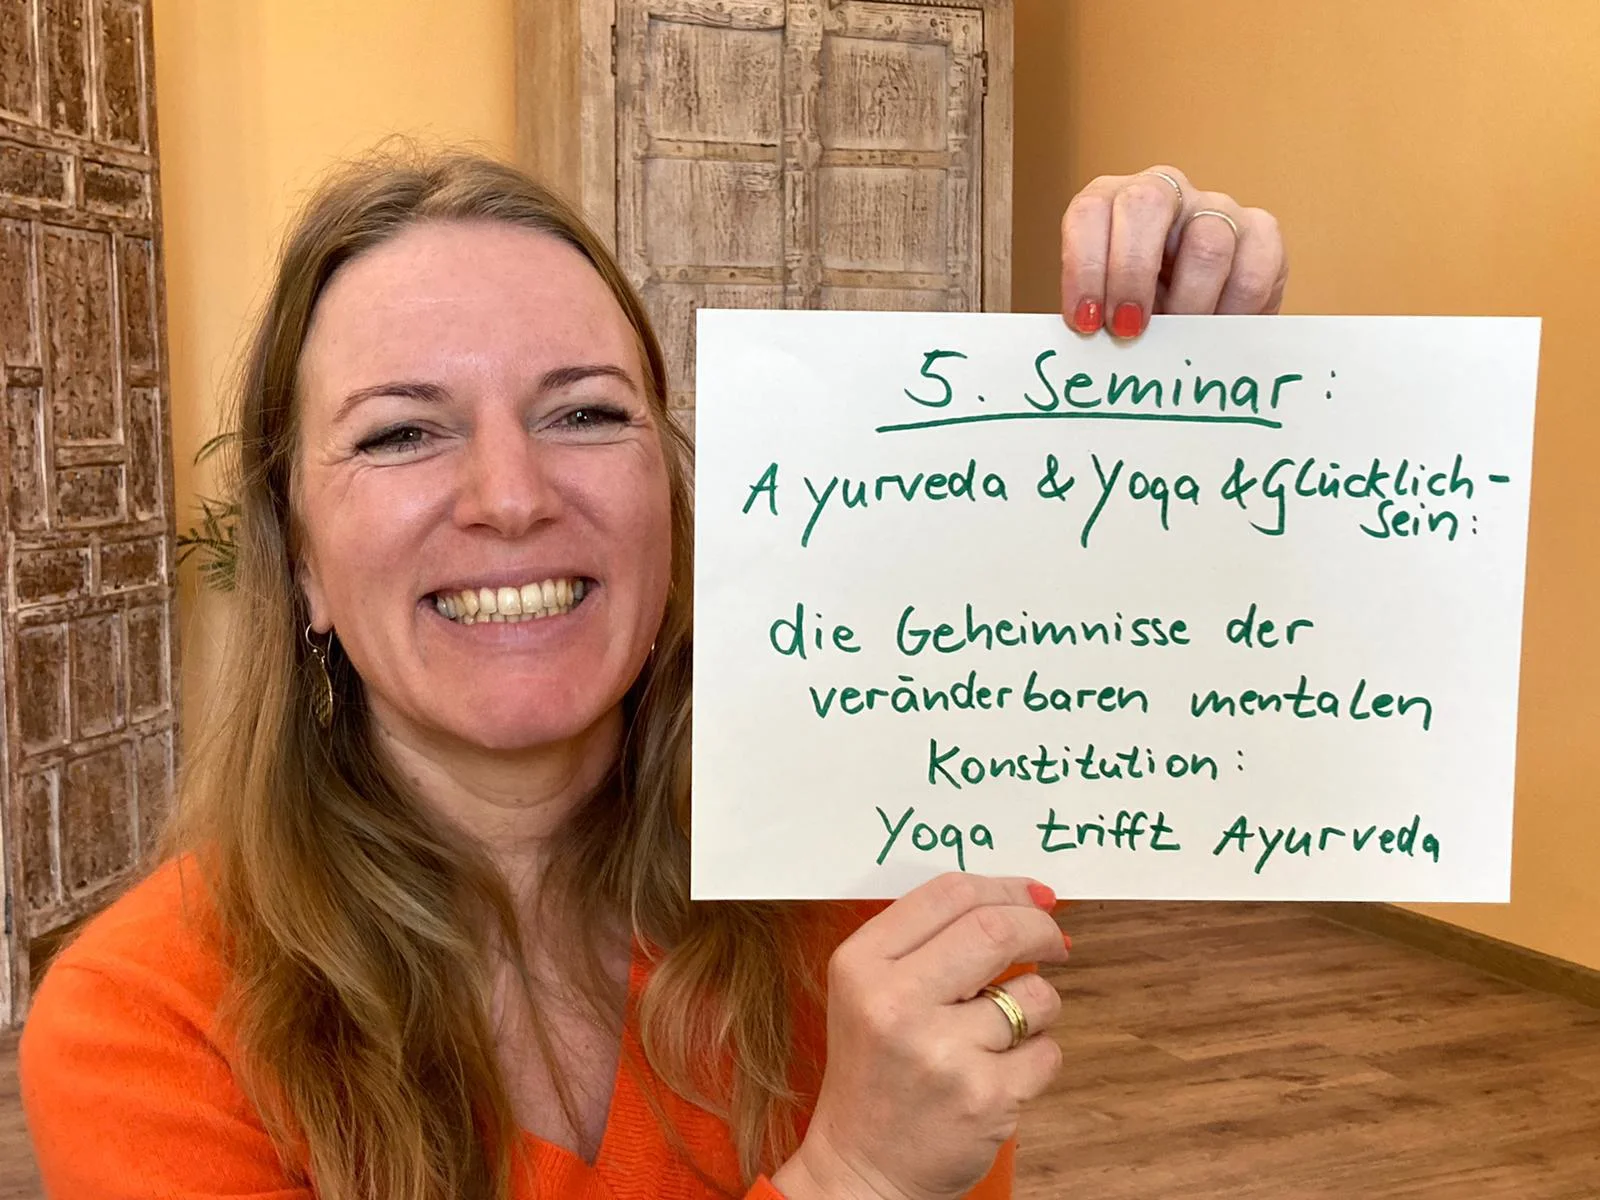 5. Seminar:
Ayurveda & Yoga & Glücklich-
sein:
die Geheimnisse der
veränderbaren mentalen
Konstitution:
Yoga trifft Ayurveda